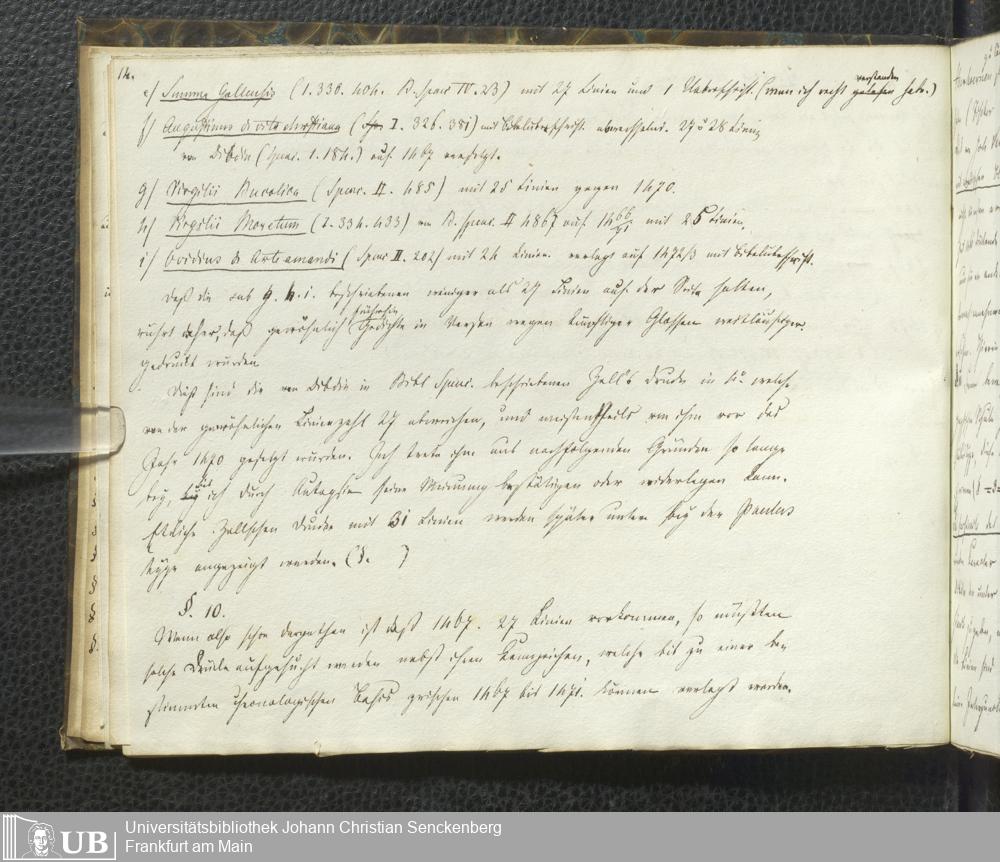 14.
e/ Summa Gallensis (1. 330. 404. B. spenc IV. 23) mit 27 Linien und 1 Ueberschrift. (wenn ich recht verstanden gelesen habe.)
f/ Augustinus de vita christiana ( I. 326. 381) mit abwechselnd. 27 u 28 Linien
von Dibdin (spenc. 1. 184.) auf 1467 
g/ Virgilii Bucolica (Spenc. II. 485) mit 25 Linien gegen 1470.
h/ Virgilii Moretum (I. 334. 433) von B. spenc. II 486 auf mit 25 Linien.
i/ Ovidius de Arte amandi (Spenc II. 202) mit 24 Linien. verlegt auf 1472/3 mit
Daß die sub g. h. i. beschriebenen weniger als 27 Linien auf der Seite halten,
rührt daher, daß gewöhnlich Gedichte in Versen wegen Glossen weitläufiger
gedruckt wurden
Dieß sind die von Dibdin in Bibl Spenc. beschriebenen Zell's Drucke in 4o. welche
von der gewöhnlichen Linienzahl 27 abweichen, und meistentheils von ihm vor das
Jahr 1470 gesetzt wurden. Ich trete ihm aus nachfolgenden Gründen so lange
bey, bis ich durch Autopsie seine Meinung bestätigen oder widerlegen kann.
Etliche Zellschen Drucke mit 31 Linien werden später unten bey der Paulus
type angezeigt werden. (§. )
§. 10.
Wenn also schon dargethan ist daß 1467. 27 Linien vorkommen, so müßten
solche Drucke aufgesucht werden nebst ihren Kennzeichen, welche bis zu einer be
stimmten chronologischen Basis zwischen 1467 bis 1471. können verlegt werden.
UB
Universitätsbibliothek Johann Christian Senckenberg
Frankfurt am Main